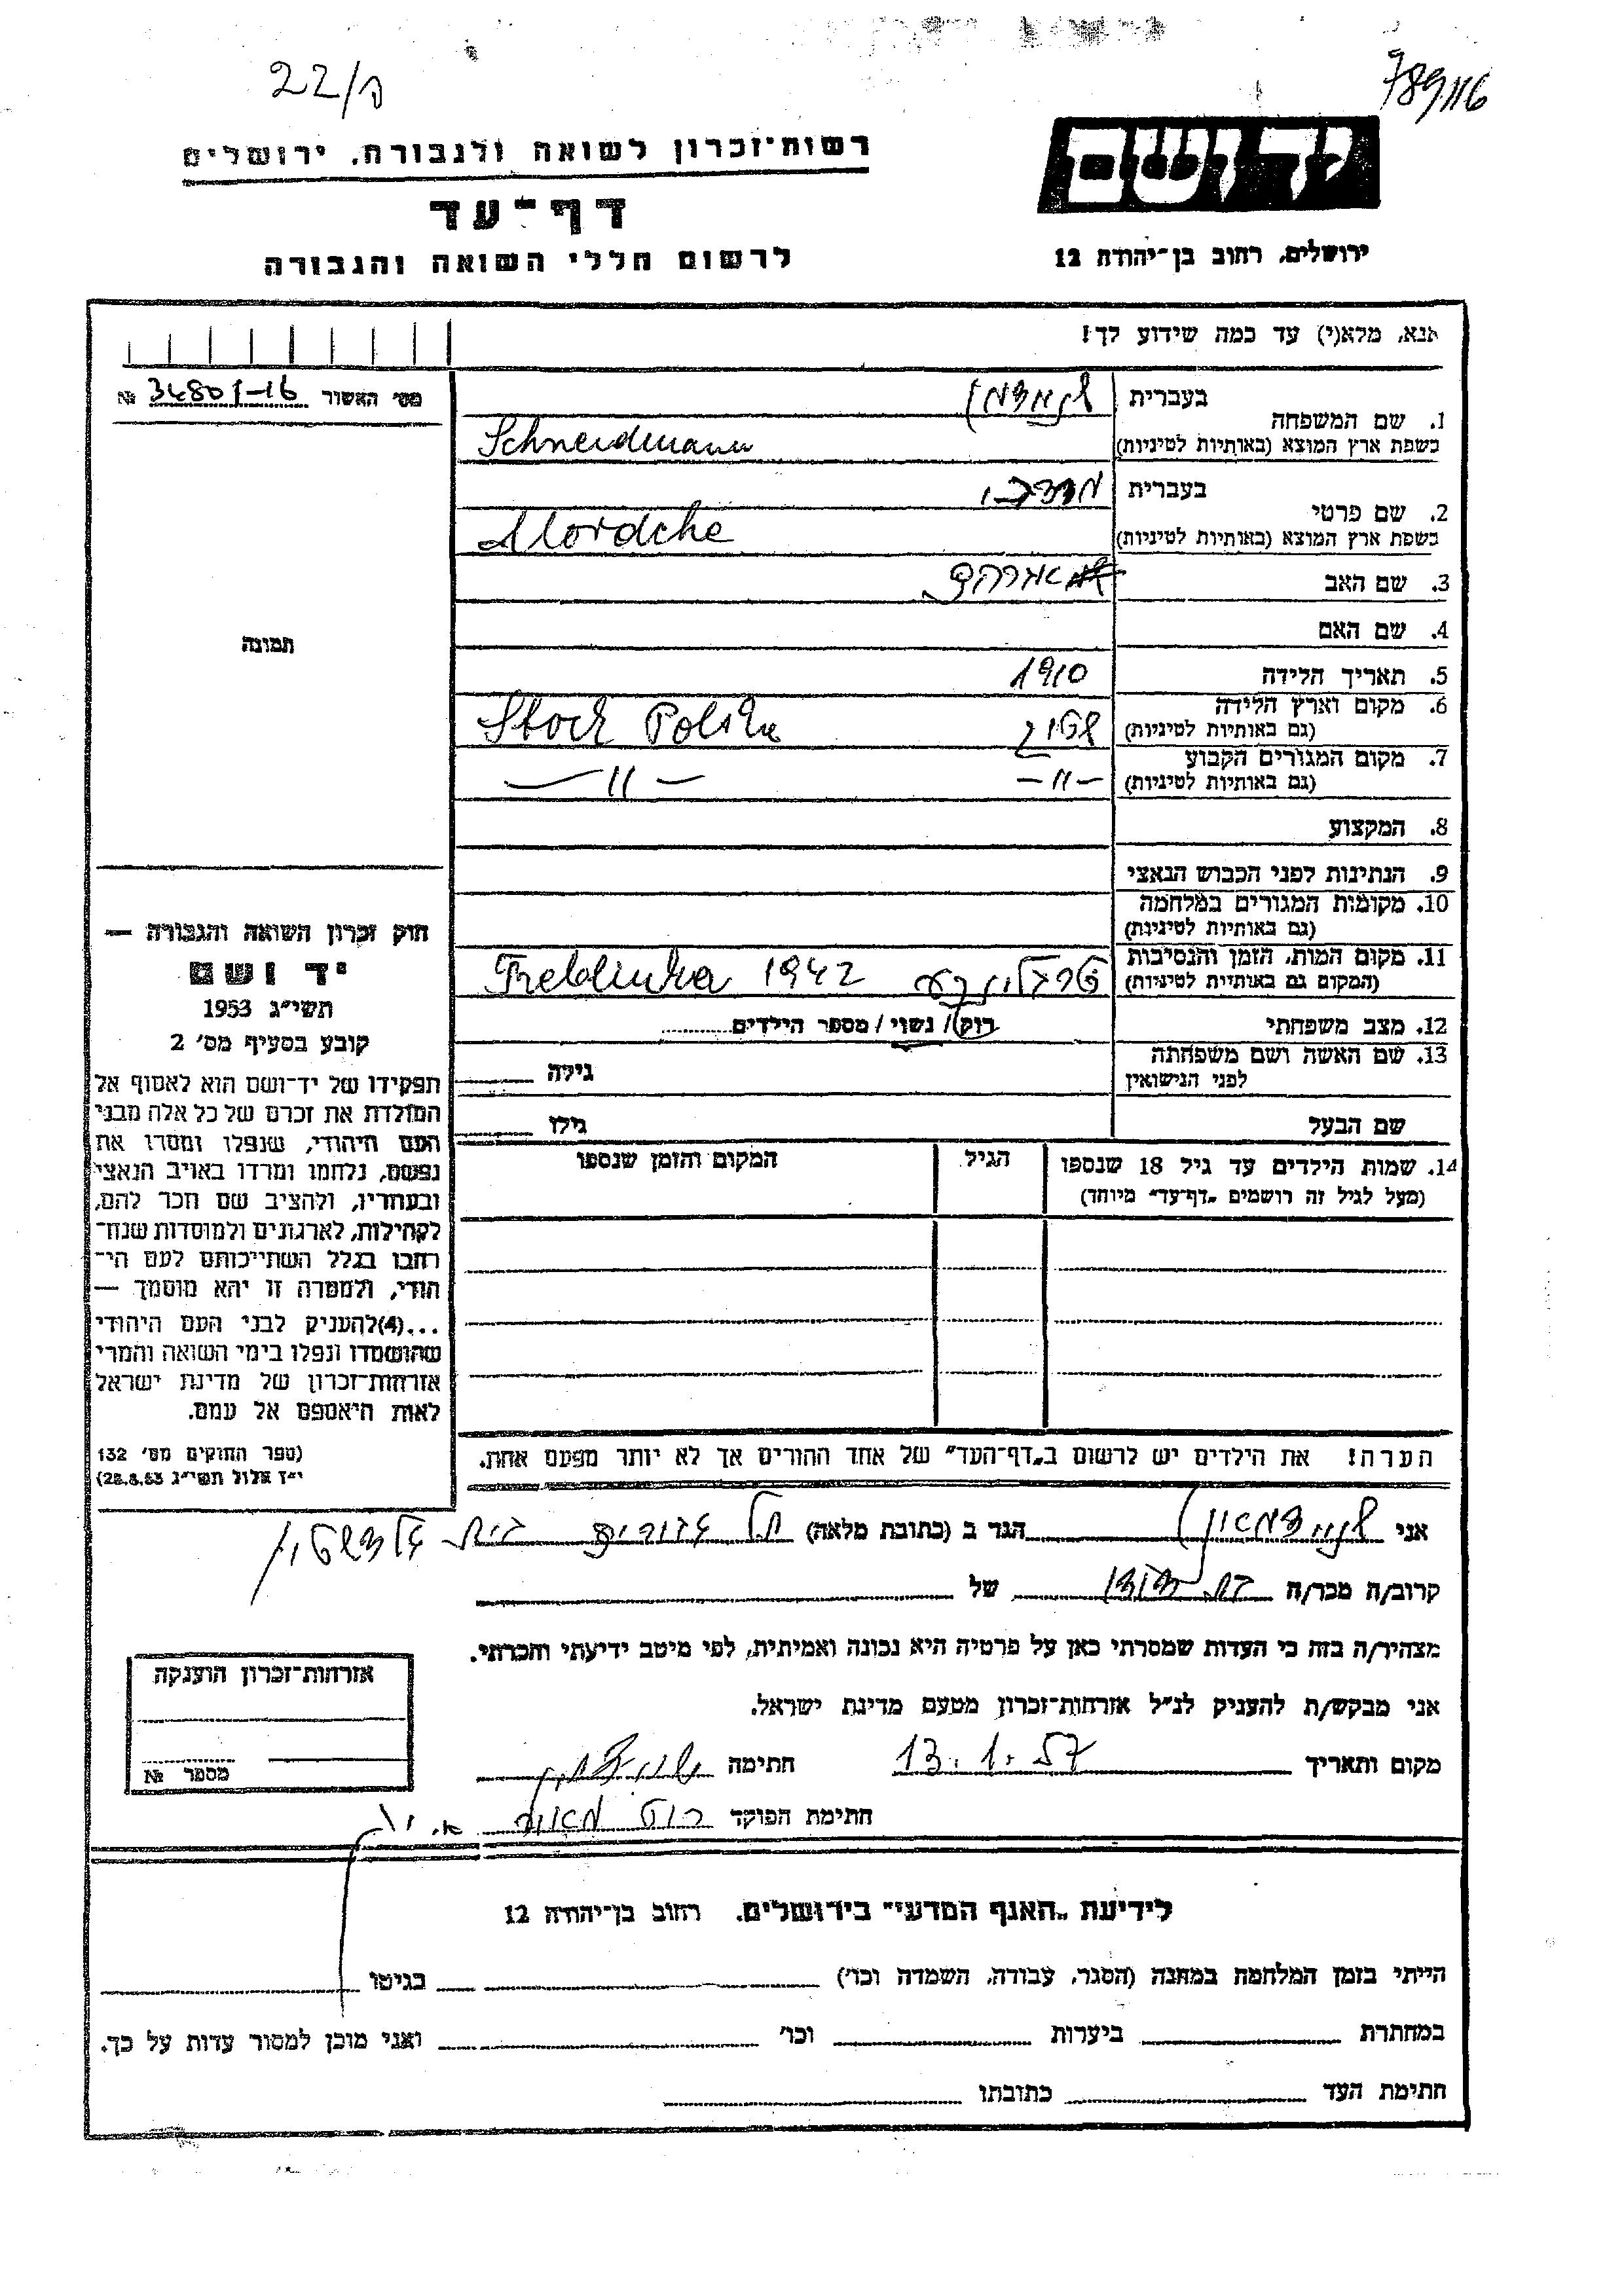 22/ה
789116
יד ושם
רשות-זכרון לשואה ולגבורה, ירושלים
דף-עד
ירושלים, רחוב בן-יהודה 12
לרשום חללי השואה והגבורה
אנא, מלא(י) עד כמה שידוע לך!
מס' האשור 34801-16 №
תמונה
1. שם המשפחה בעברית
בשפת ארץ המוצא (באותיות לטיניות) Schneidmann
2. שם פרטי בעברית מרדכי
בשפת ארץ המוצא (באותיות לטיניות) Mordche
3. שם האב אברהם
4. שם האם
5. תאריך הלידה 1910
6. מקום וארץ הלידה
(גם באותיות לטיניות) סטוק Stock Polska
7. מקום המגורים הקבוע
(גם באותיות לטיניות) -״- -״-
8. המקצוע
9. הנתינות לפני הכבוש הנאצי
10. מקומות המגורים במלחמה
(גם באותיות לטיניות)
11. מקום המות, הזמן והנסיבות
(המקום גם באותיות לטיניות) טרבלינקה Treblinka 1942
12. מצב משפחתי רוק / נשוי / מספר הילדים
13. שם האשה ושם משפחתה
לפני הנישואין גילה
שם הבעל גילו
14. שמות הילדים עד גיל 18 שנספו הגיל המקום והזמן שנספו
(מעל לגיל זה רושמים „דף-עד״ מיוחד)
הערה! את הילדים יש לרשום ב„דף-העד״ של אחד ההורים אך לא יותר מפעם אחת.
חוק זכרון השואה והגבורה —
יד ושם
תשי״ג 1953
קובע בסעיף מס' 2
תפקידו של יד-ושם הוא לאסוף אל
המולדת את זכרם של כל אלה מבני
העם היהודי, שנפלו ומסרו את
נפשם, נלחמו ומרדו באויב הנאצי
ובעוזריו, ולהציב שם וזכר להם,
לקהילות, לארגונים ולמוסדות שנח־
רבו בגלל השתייכותם לעם הי־
הודי, ולמטרה זו יהא מוסמך —
...(4)להעניק לבני העם היהודי
שהושמדו ונפלו בימי השואה והמרי
אזרחות-זכרון של מדינת ישראל
לאות היאספם אל עמם.
(ספר החוקים מס' 132
י״ז אלול תשי״ג 28.8.53)
אני שניידמאן הגר ב (כתובת מלאה)
קרוב/ה מכר/ה בן דודו של
מצהיר/ה בזה כי העדות שמסרתי כאן על פרטיה היא נכונה ואמיתית, לפי מיטב ידיעתי והכרתי.
אני מבקש/ת להעניק לנ״ל אזרחות-זכרון מטעם מדינת ישראל.
מקום ותאריך 13.1.57 חתימה
חתימת הפוקד
אזרחות-זכרון הוענקה
מספר №
לידיעת „האגף המדעי״ בירושלים, רחוב בן-יהודה 12
הייתי בזמן המלחמה במחנה (הסגר, עבודה, השמדה וכו') בגיטו
במחתרת ביערות וכו' ואני מוכן למסור עדות על כך.
חתימת העד כתובתו